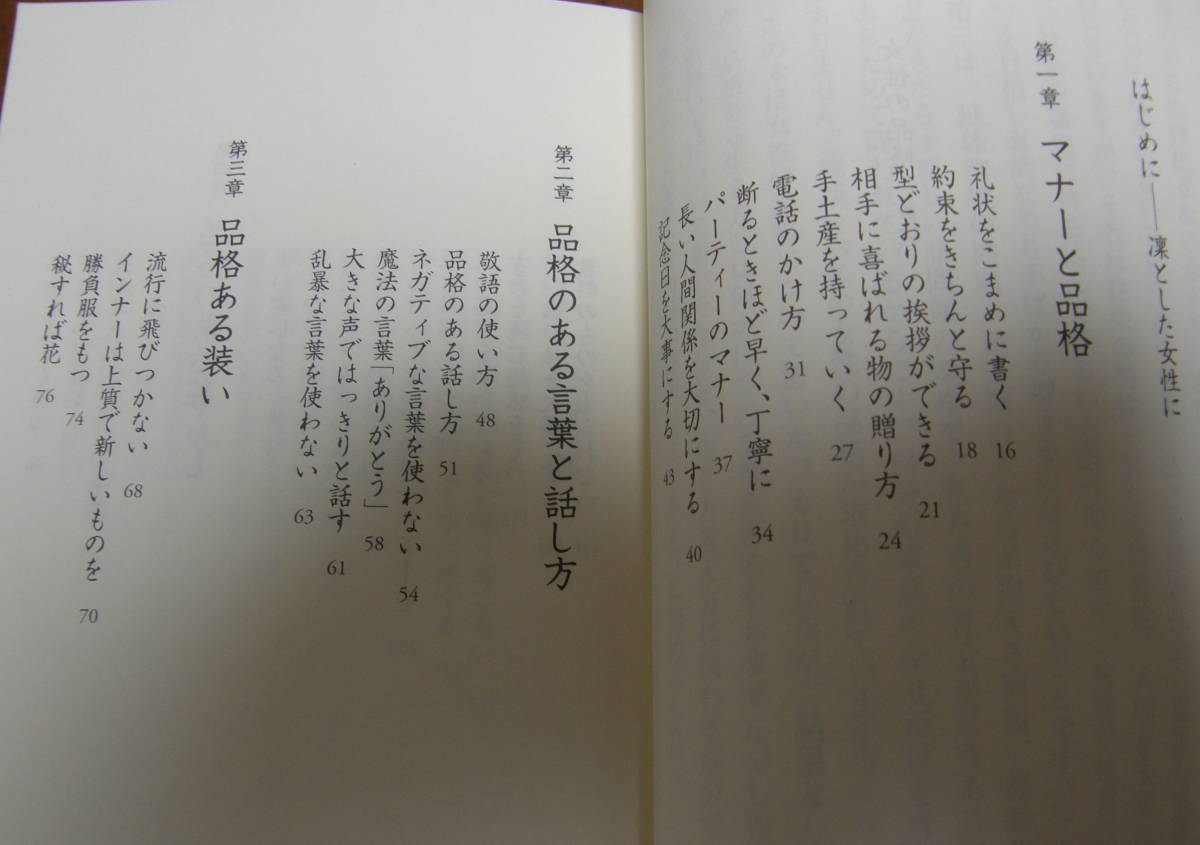 はじめに——凜とした女性に
第一章 マナーと品格
礼状をこまめに書く 16
約束をきちんと守る 18
型どおりの挨拶ができる 21
相手に喜ばれる物の贈り方 24
手土産を持っていく 27
電話のかけ方 31
断るときほど早く、丁寧に 34
パーティーのマナー 37
長い人間関係を大切にする 40
記念日を大事にする 43
第二章 品格のある言葉と話し方
敬語の使い方 48
品格のある話し方 51
ネガティブな言葉を使わない 54
魔法の言葉「ありがとう」 58
大きな声ではっきりと話す 61
乱暴な言葉を使わない 63
第三章 品格ある装い
流行に飛びつかない 68
インナーは上質で新しいものを 70
勝負服をもつ 74
秘すれば花 76